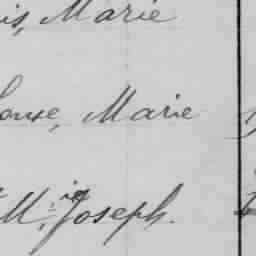 is, Marie
ouse, Marie
M. Joseph.